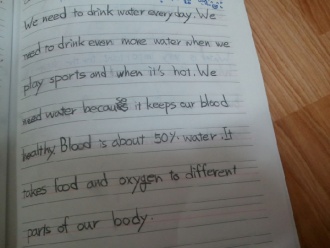 We need to drink water every day. We
need to drink even more water when we
play sports and when it's hot. We
need water because it keeps our blood
healthy. Blood is about 50% water. It
takes food and oxygen to different
parts of our body.